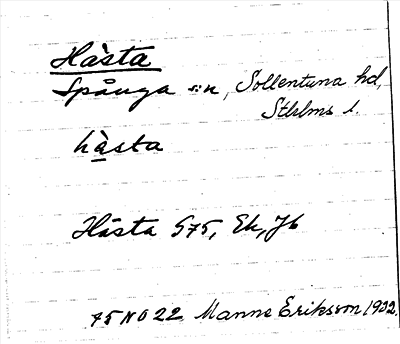 Hàsta
Spånga s:n, Sollentuna hd,
Sthlms l.
hàsta
Hästa G75, Ek, Jb
75 NO 22 Manne Eriksson 1932.